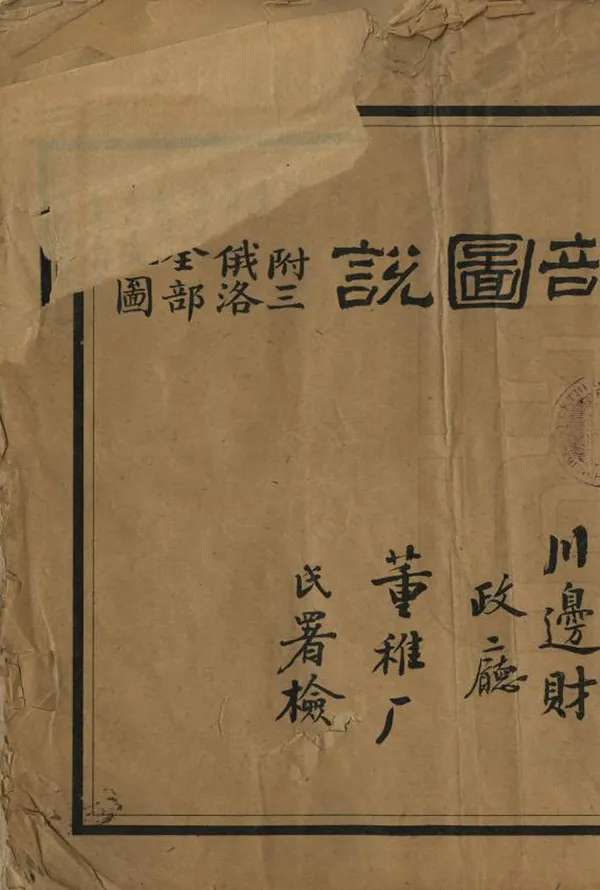 圖說
附三
俄洛
全部
圖
川邊財
政廳
董稚厂
民署檢